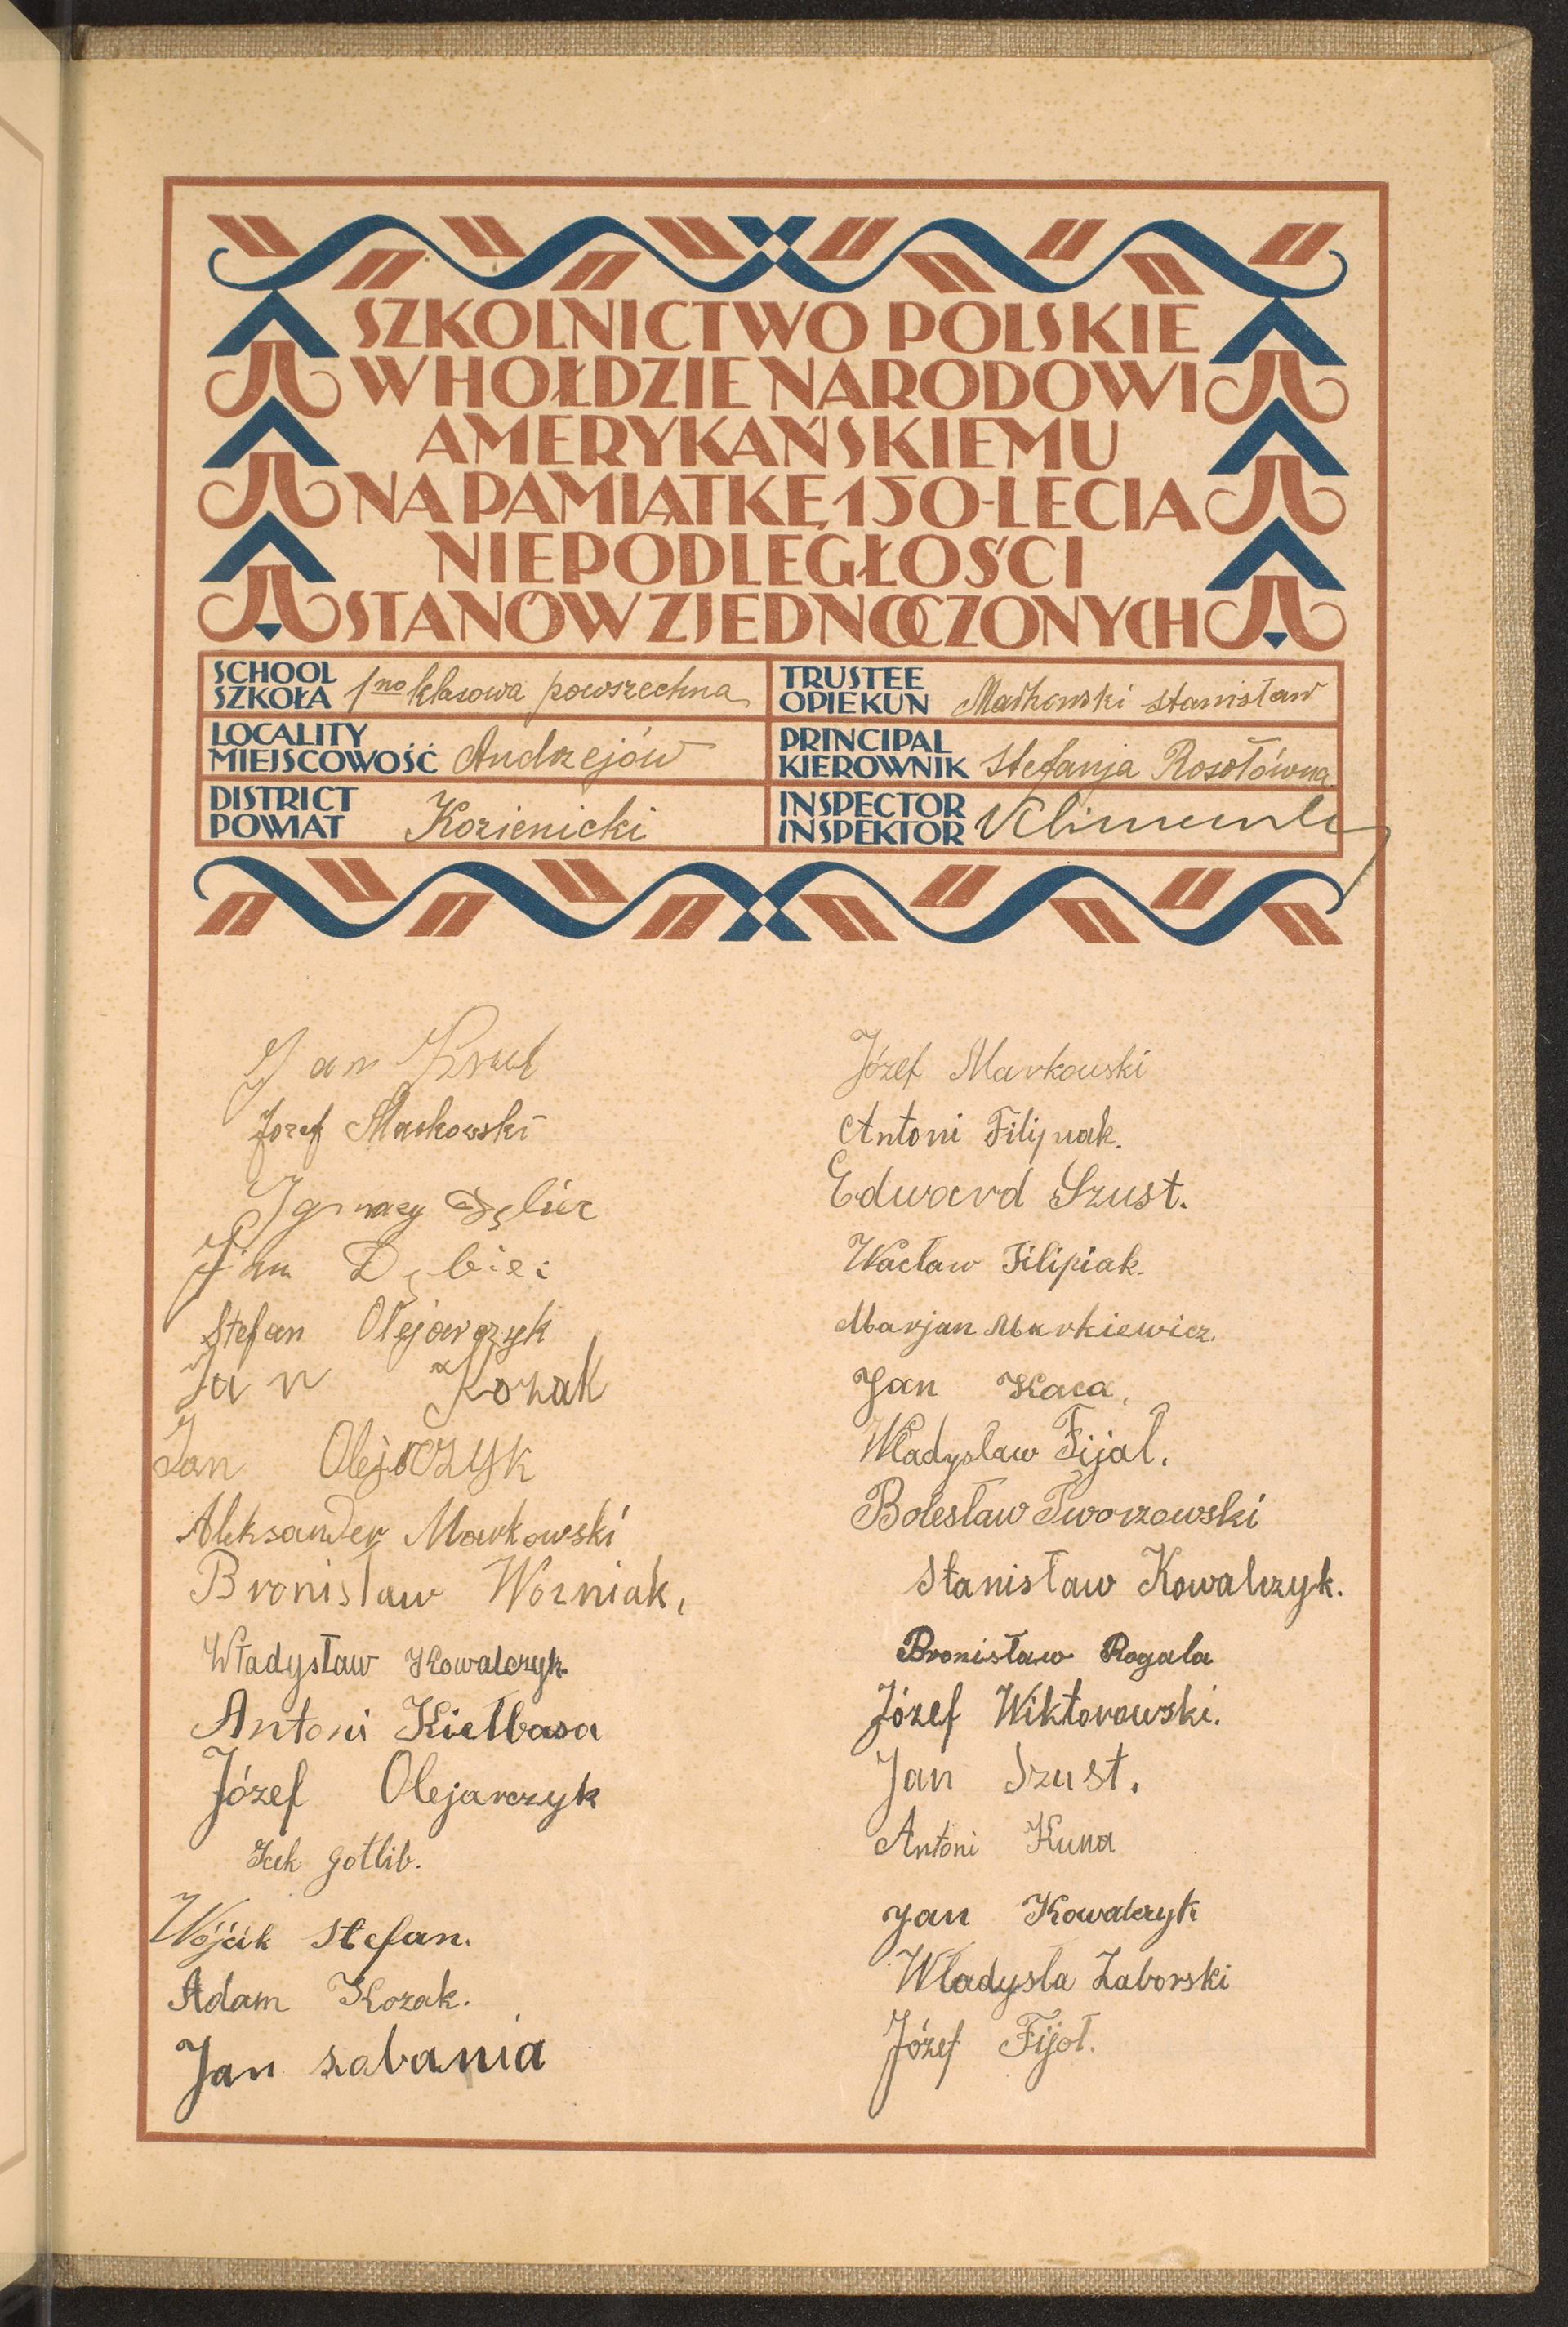 SZKOLNICTWO POLSKIE
W HOŁDZIE NARODOWI
AMERYKAŃSKIEMU
NA PAMIĄTKĘ 150-LECIA
NIEPODLEGŁOŚCI
STANÓW ZJEDNOCZONYCH
SCHOOL
SZKOŁA 1no klasowa powszechna
LOCALITY
MIEJSCOWOŚĆ Andrzejów
DISTRICT
POWIAT Kozienicki
TRUSTEE
OPIEKUN Stanisław
PRINCIPAL
KIEROWNIK Stefanja Rosołówna
INSPECTOR
INSPEKTOR
Jan Krul
Józef Markowski
Ignacy
Dębiec
Stefan Olejarczyk
Jan Kozak
Jan Olejrczyk
Aleksander Markowski
Bronisław Wozniak,
Władysław Kowalczyk
Antoni Kiełbasa
Józef Olejarczyk
Icek Gotlib.
Wójcik Stefan.
Adam Kozak.
Jan Szabania
Józef Markowski
Antoni Filipiak.
Edward Szust.
Wacław Filipiak.
Marjan Markiewicz.
Jan Kaca.
Władysław Fijał.
Bolesław Tworzowski
Stanisław Kowalczyk.
Bronisław Rogala
Józef Wiktorowski.
Jan Szust.
Antoni Kuna
Jan Kowalczyk
Władysła Zaborski
Józef Fijoł.